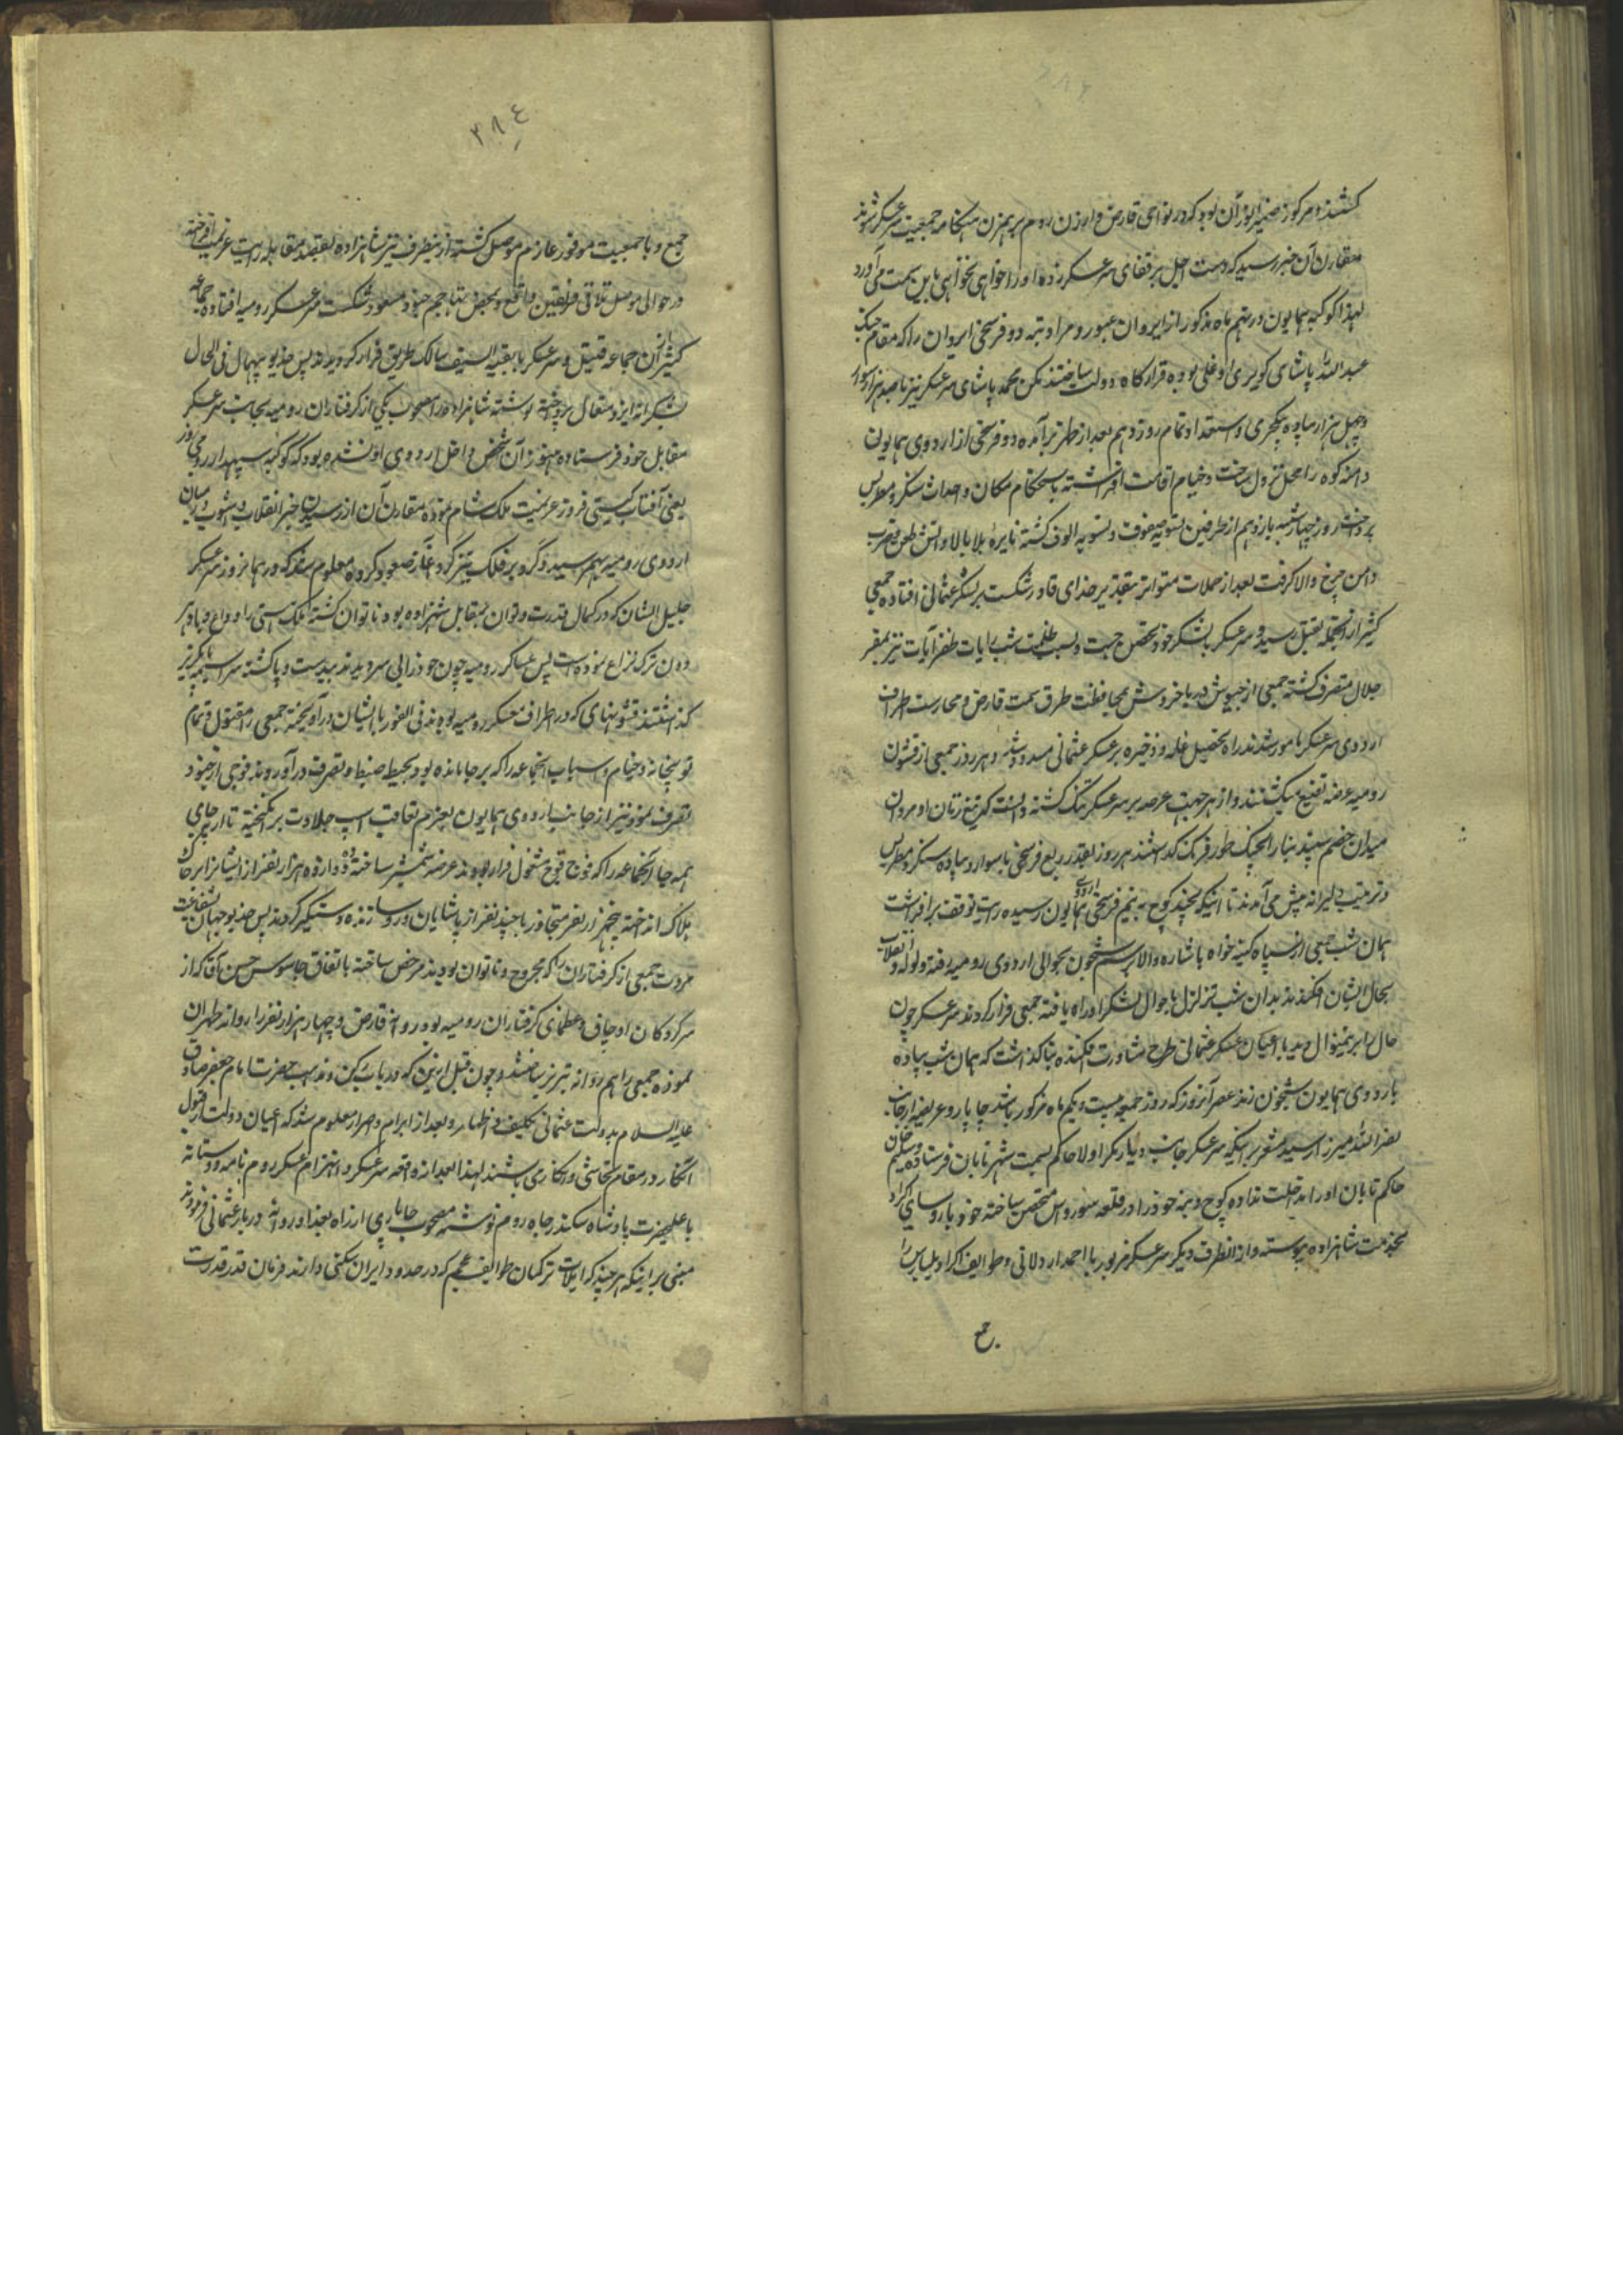 کشتند و مرکوز ضمیر انور آن بود که در نواحی قارص و ارزن روم بر همزن هنگامه جمعیت سرعسکر شوند
مقارن آن خبر رسید که دست اجل بر قفای سرعسکر زده او را خواهی نخواهی باین سمت می‌آورد
لهذا کوکبه همایون در نهم ماه مذکور از ایروان عبور و مراد تپه دو فرسخی ایروان را که مقام جنک
عبدالله پاشای کوپریلی اوغلی بود قرارگاه دولت ساختند یکن محمد پاشای سرعسکر نیز با صد هزار سوار
و چهل هزار پیاده ینکچری و استعداد تمام روز دهم بعد از ظهر برآمده دو فرسخی از اردوی همایون
دامنه کوه را محل نزول ساخت و خیام اقامت افراشته باستحکام مکان و احداث سنکر و مطریس
پرداخت روز چهارشنبه یازدهم از طرفین تسویه صفوف و تسویه الوف کشته نایره بلا بالا و آتش طعن و ضرب
دامن چرخ والا کرفت بعد از حملات متواتر بتقدیر خدای قادر شکست بر لشکر عثمانی افتاده جمعی
کثیر از آنجمله بقتل رسید و سرعسکر بلشکر خود تحصن جست و بسبب ظلمت شب رایات ظفر آیات نیز بمقر
جلال منصرف کشته جمعی از جیوش دریا خروش بمحافظت طرق سمت قارص و محارست اطراف
اردوی سرعسکر مامور شدند راه تحصیل غله و ذخیره بر عسکر عثمانی مسدود شد و هر روز جمعی از قشون
رومیه عرضه تضییع میکشتند و از هر جهت عرصه بر سرعسکر تنک کشته دانست که تیغ زنان او مردان
میدان خصم نیستند بنا را بجنک طور فرنک کذاشتند هر روز بقدر ربع فرسخی با سوار و پیاده سنکر و مطریس
و ترتیب دلیرانه پیش می‌آمدند تا اینکه بچند کوچ به نیم فرسخی اردوی همایون رسیده رایت توقف برافراشت
همان شب جمعی از سپاه کینه خواه باشاره والا برسم شبخون بحوالی اردوی رومیه رفته ولوله و انقلاب
بحال ایشان افکندند بدان شب تزلزل باحوال لشکر او راه یافته جمعی فرار کردند سرعسکر چون
حال را بر این منوال دید با اعیان عسکر عثمانی طرح مشاورت افکنده بنا کذاشت که همان شب پیاده
باردوی همایون شبخون زند عصر آنروز که روز جمعه بیست و یکم ماه مزکور باشد چاپار و عریضه از جانب
نصرالله میرزا رسید مشعر بر اینکه سرعسکر جانب دیاربکر اولا حاکم بسمت شهر تابان فرستاده و سلیم خان
حاکم تابان او را مداخلت نداده کوچ و بنه خود را در قلعه سوروس متحصن ساخته خود با روسای اکراد
بخدمت شاهزاده پیوسته و از آنطرف دیکر سرعسکر مزبور با احمد اردلانی و طوایف اکراد و بلباس را
جمع
۳۸٤
جمع و با جمعیت موفور عازم موصل کشته از اینطرف نیز شاهزاده بقصد مقابله رایت عزیمت افراخته
در حوالی موصل تلاقی فریقین واقع و بمحض تهاجم جنود مسعود شکست بر عسکر رومیه افتاده جماعه
کثیر از آن جماعه قتیل و سرعسکر با بقیة السیف سالک طریق فرار کردیدند پس خدیو بیهمال فی الحال
شکرانه ایزد متعال پرداخته نوشته شاهزاده را مصحوب یکی از کرفتاران رومیه بجانب سرعسکر
مقابل خود فرستاده هنوز آن شخص داخل اردوی او نشده بود که کوکبه سپهدار رومی روز
یعنی آفتاب کیتی فروز عزیمت ملک شام نموده مقارن آن از رسیدن خبر انقلاب و آشوب در میان
اردوی رومیه بهم رسید و کرد بر فلک تیز کرد و غبار صعود کرده معلوم شد که در همانروز سرعسکر
جلیل الشان که در کمال قدرت و توان بمقابل شهزاده بود ناتوان کشته ملک هستی را وداع و با دهر
دون ترک نزاع نموده است پس عساکر رومیه چون خود را بی سر دیدند بیدست و پا کشته سراسیمه پا بکریز
کذاشتند قشونهای که در اطراف معسکر رومیه بودند فی الفور با ایشان درآویخته جمعی را مقتول و تمام
توپخانه و خیام و اسباب آنجماعه را که بر جا مانده بود بحیطه ضبط و تصرف درآوردند فوجی از جنود
نصرت نمود نیز از جانب اردوی همایون بعزم تعاقب اسب جلادت برانکیخته تا ارپه چای
همه جا آنجماعه را که فوج فوج مشغول فرار بودند عرضه شمشیر ساخته دوازده هزار نفر از ایشان را بر خاک
هلاک انداخته پنجهزار نفر متجاوز با چند نفر از پاشایان و روسا زنده دستکیر کردند پس خدیو جهان بشفاعت
مروت جمعی از کرفتاران را که مجروح و ناتوان بودند مرخص ساخته باتفاق جاموس حسن آقا که از
سرکردکان اوجاق و عظمای کرفتاران رومیه بود روانه قارص و چهار هزار نفر را روانه طهران
نموده جمعی را هم روانه تبریز ساختند و چون قبل از این که در باب رکن و مذهب حضرت امام جعفر صادق
علیه السلام بدولت عثمانی تکلیف می‌فرمودند و بعد از ابرام و اصرار معلوم شد که اعیان دولت از قبول
آنکار در مقام تحاشی و انکاری باشند لهذا بعد از واقعه سرعسکر و انهزام عسکر روم نامه دوستانه
باعلیحضرت پادشاه سکندر جاه روم نوشته مصحوب چاپاری از راه بغداد روانه دربار عثمانی فرمودند
مبنی بر اینکه هر چند که ایلات ترکمان طوایف عجم که در حدود ایران سکنی دارند فرمان قدر قدرت